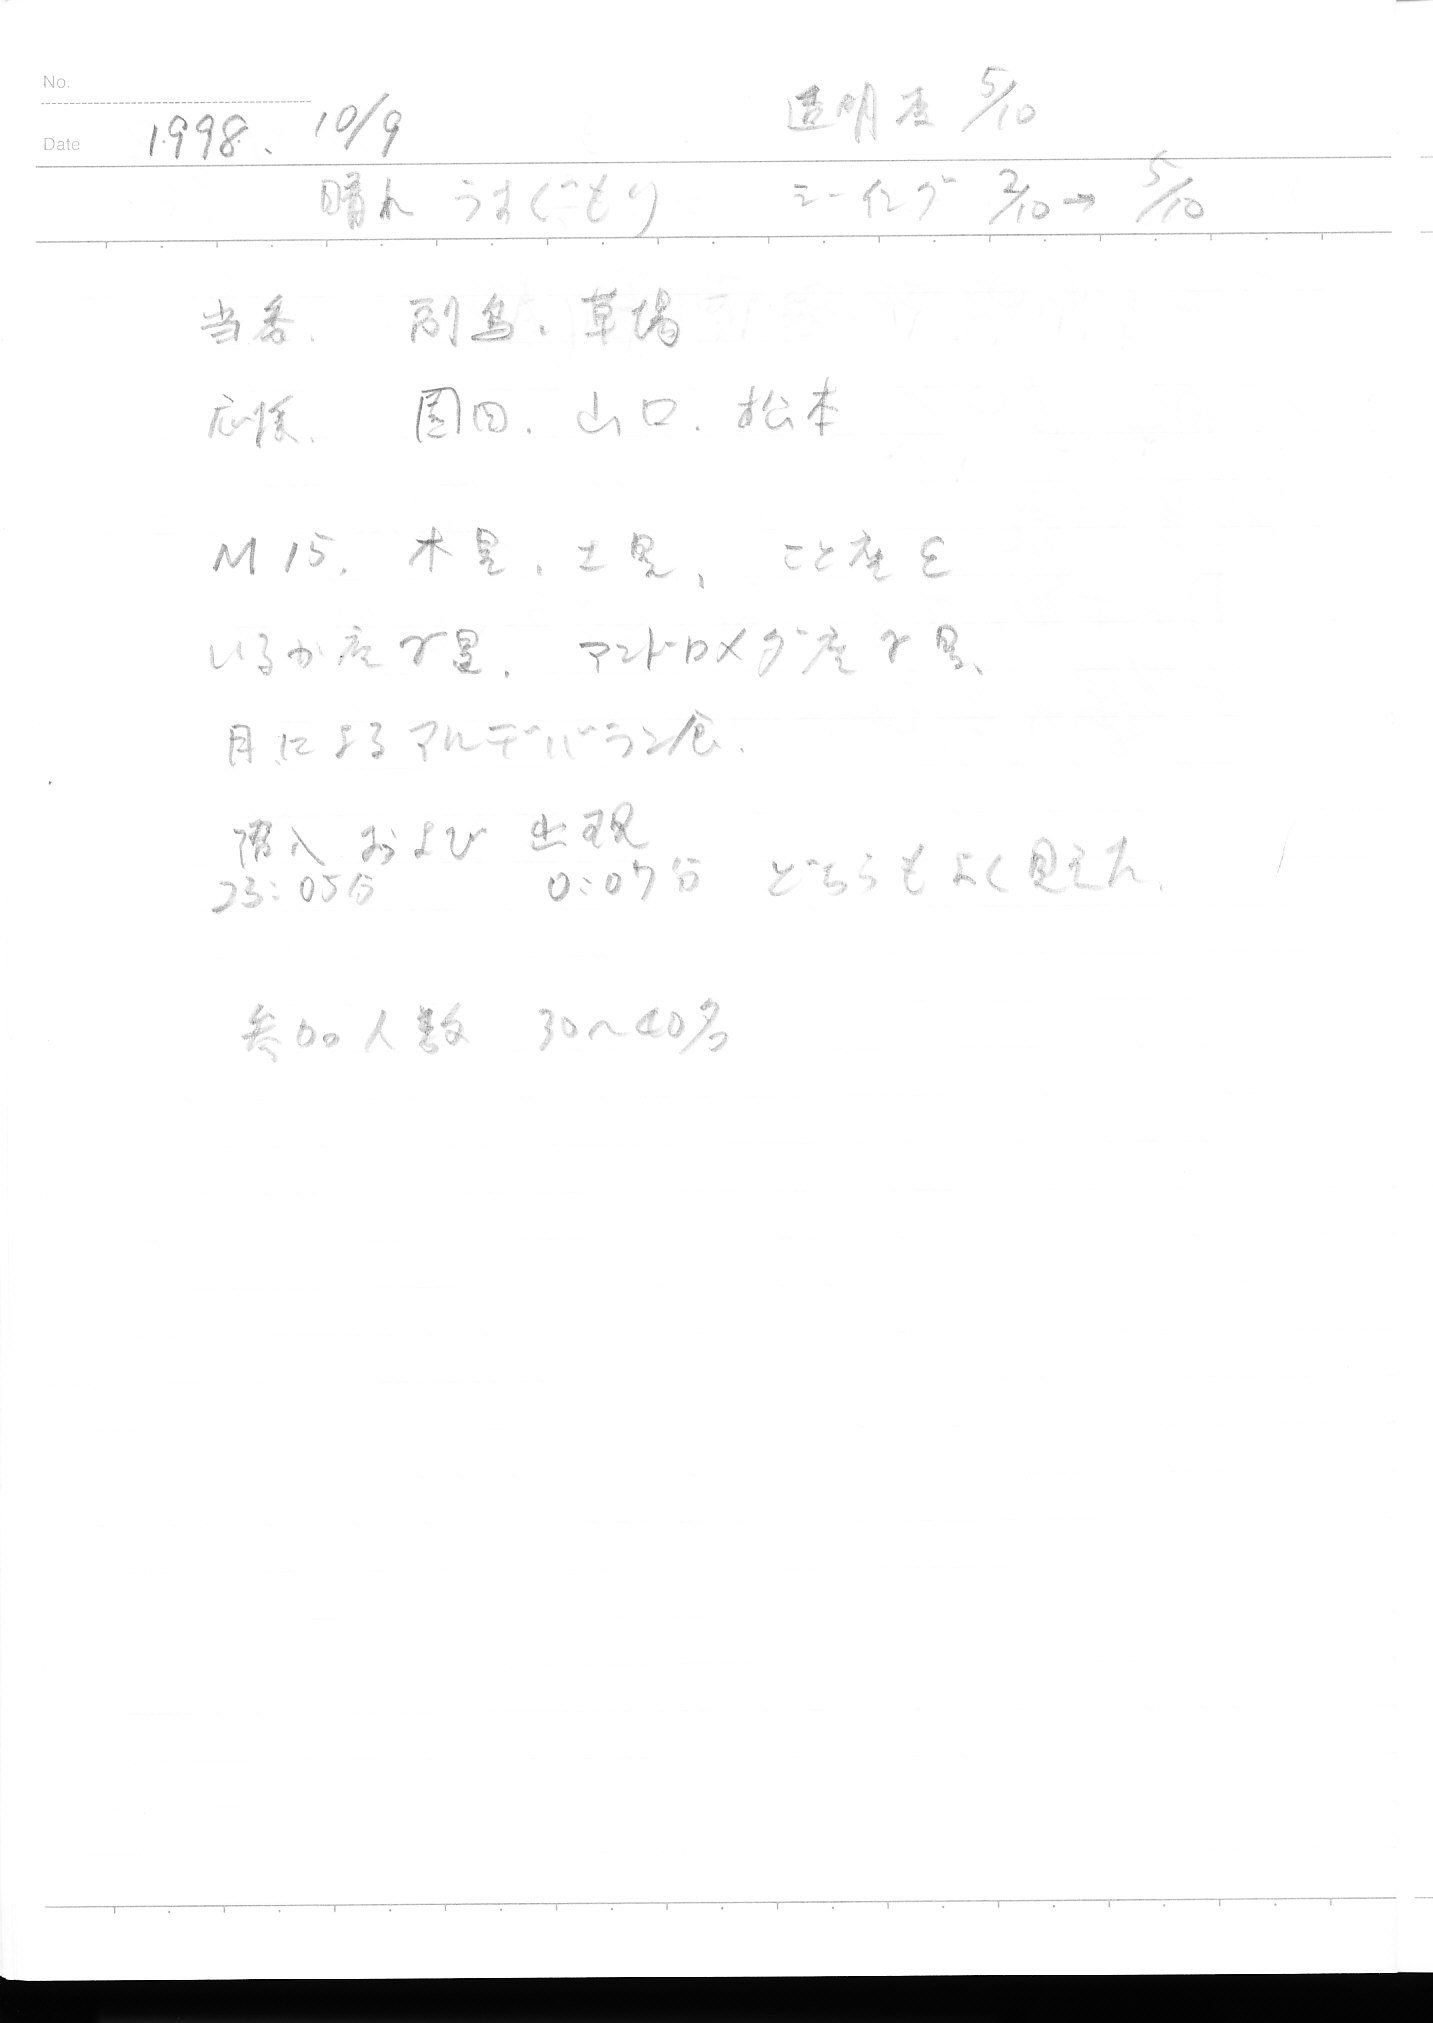 No.
透明度 5/10
Date 1998. 10/9
晴れ うすぐもり シーイング 2/10→ 5/10
当番. 副島、草場
応援. 園田. 山口. 松本
M15. 木星、土星、こと座ε
いるか座γ星. アンドロメダ座γ星、
月によるアルデバラン食.
潜入 および 出現
23:05分 0:07分 どちらもよく見えた.
参加人数 30〜40名